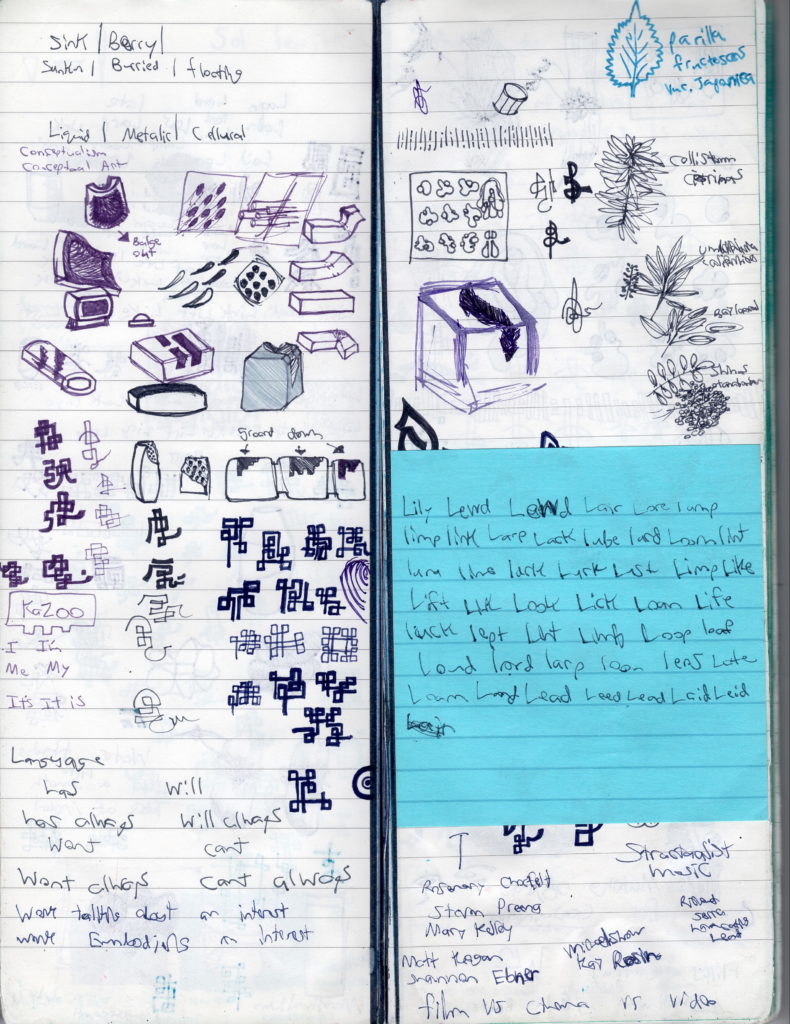 Sink | Berry |
Sunkn | Burried | floating
Liquid | Metalic | Cultural
Conceptualism
Conceptual Art
Bulge
out
ground down
KaZoo
I I'm
Me My
It's It is
Language
has will
has always will always
Wont cant
Wont always cant always
Work talking about an interest
work Embodying an Interest
parilla
fructescens
var. Japonica
Bay Laurel
Lily Lewd Lewd Lair Lore lump
limp link Larp Lack lube lurd Loom lint
luna lins luck Lurk Lust Limp Like
Lift Look Lick Loan Life
lurch lept Lint Limb Loop loaf
Loud lord larp loon lens Late
Loam Land Lead Leed Lead Laid Leid
Structuralist
music
Rosemary
Storm
Mary Kelly
Matt Kagan
Shannon Ebner
Kay Rosen
film vs Cinema vs video